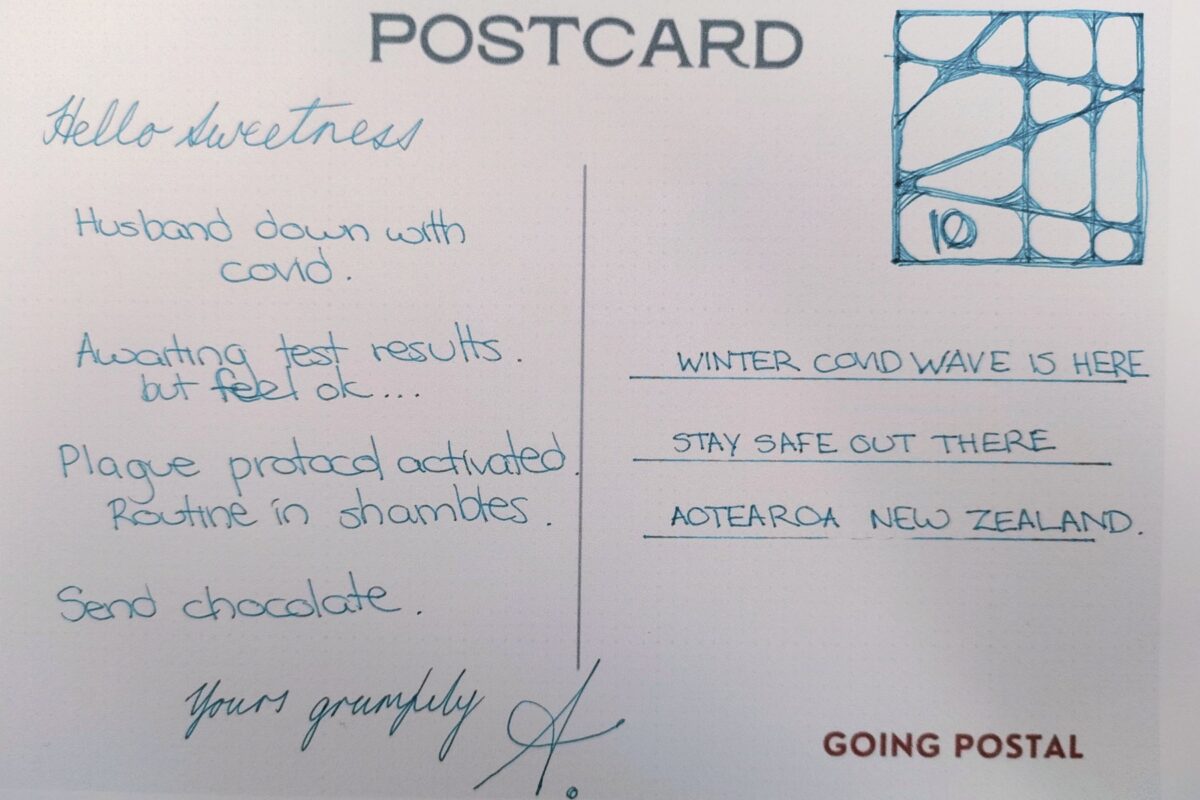 POSTCARD
Hello Sweetness
Husband down with
covid.
Awaiting test results.
but feel ok...
Plague protocol activated.
Routine in shambles.
Send chocolate.
Yours grumpily
A.
10
WINTER COVID WAVE IS HERE
STAY SAFE OUT THERE
AOTEAROA NEW ZEALAND.
GOING POSTAL